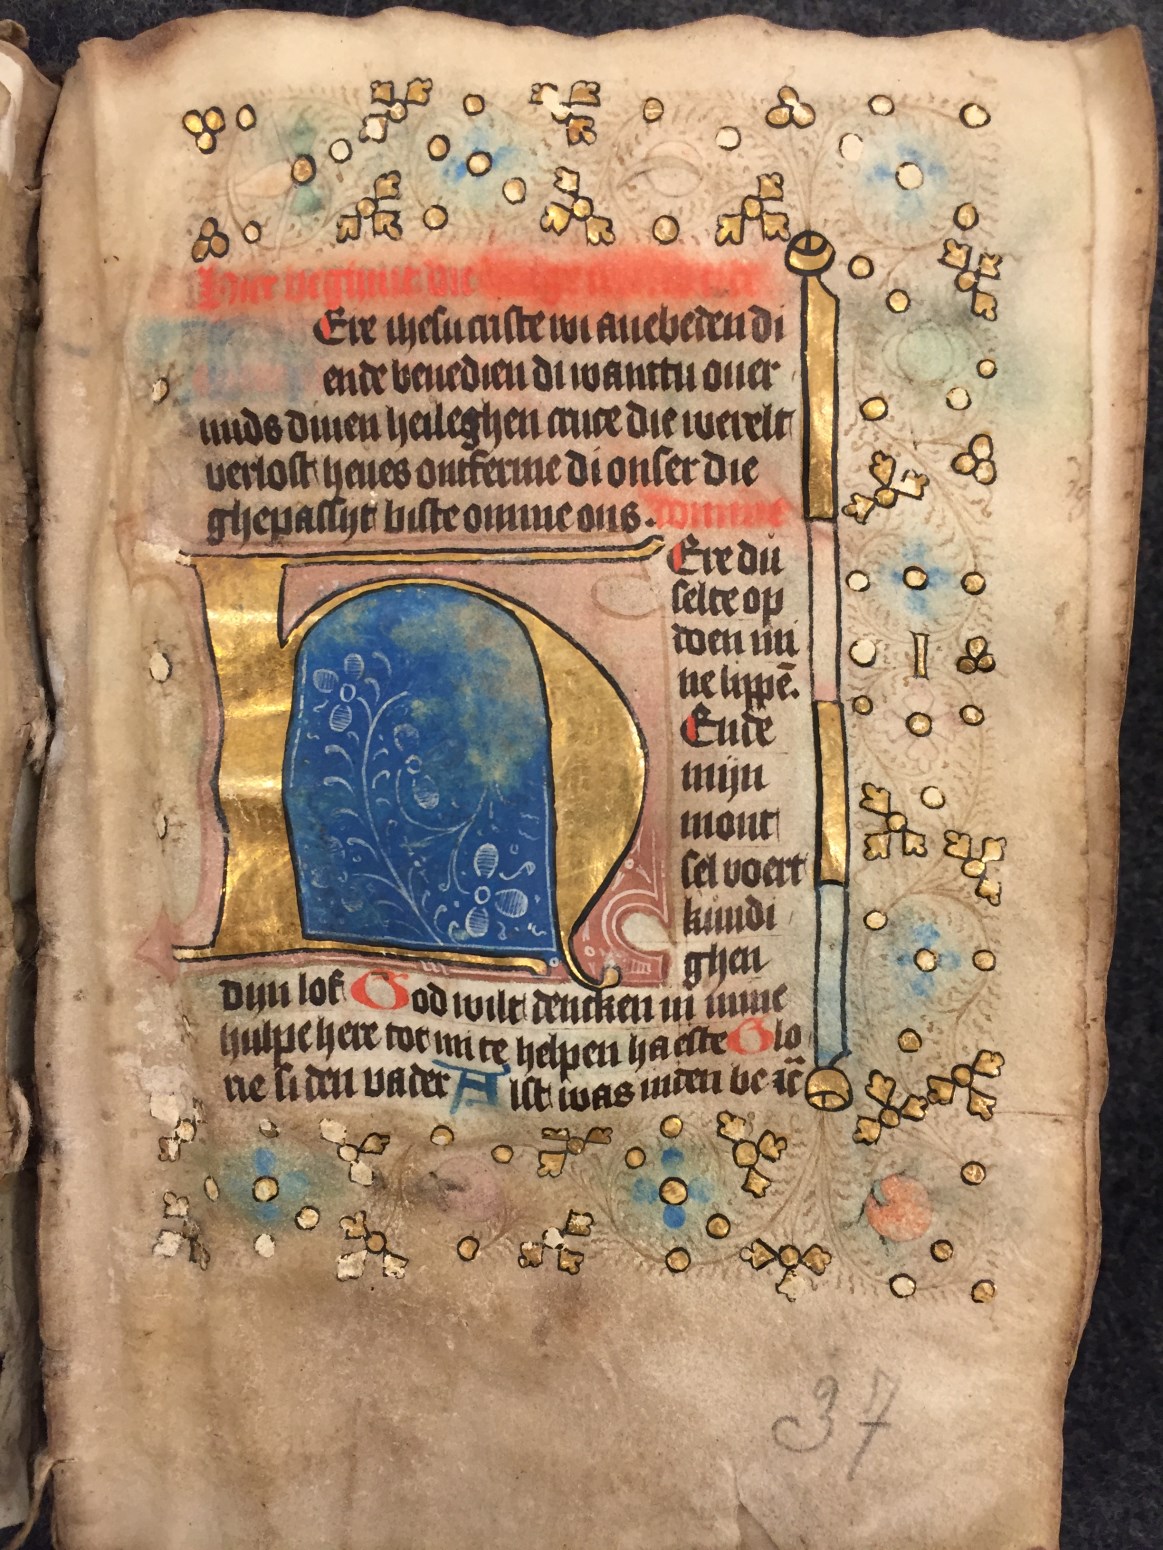 Hier beghint die
Ere ihesu criste wi anebeden di
ende benedien di wanttu ouer
mids dinen heileghen cruce die werelt
verlost heues ontferme di onser die
ghepassijt biste omme ons. Domine
Ere du
selte op
doen mi
ne lippē.
Ende
mijn
mont
sel voert
kundi
ghen
dijn lof God wilt dencken in mine
hulpe here tot mi te helpen haeste Glo
rie si den vader Alst was inden be
37